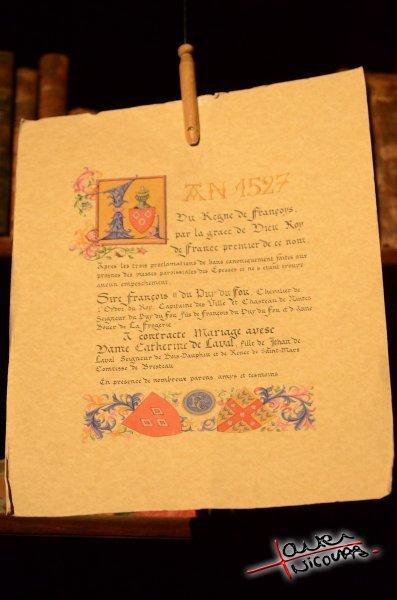 L'AN 1527
Du Regne de françoys,
par la grace de Dieu Roy
de france premier de ce nom.
Apres les trois proclamations de bans canoniquement faites aux
prosnes des messes paroissiales des Epesses et ne s'etant trouvé
aucun empeschement.
Sire françois II du Puy du fou, Chevalier de
l'Ordre du Roy, Capitaine des Ville et Chasteau de Nantes
Seigneur du Puy du Fou, fils de françois du Puy du Fou et de dame
de La Frogerie
A contracté Mariage avesc
Dame Catherine de Laval, fille de Jehan de
Laval, Seigneur de Bois-Dauphin et de Renée de Saint-Mars
Comtesse de Bresteau
En presence de nombreux parens, amys et tesmoins
Xavier
Nicolas